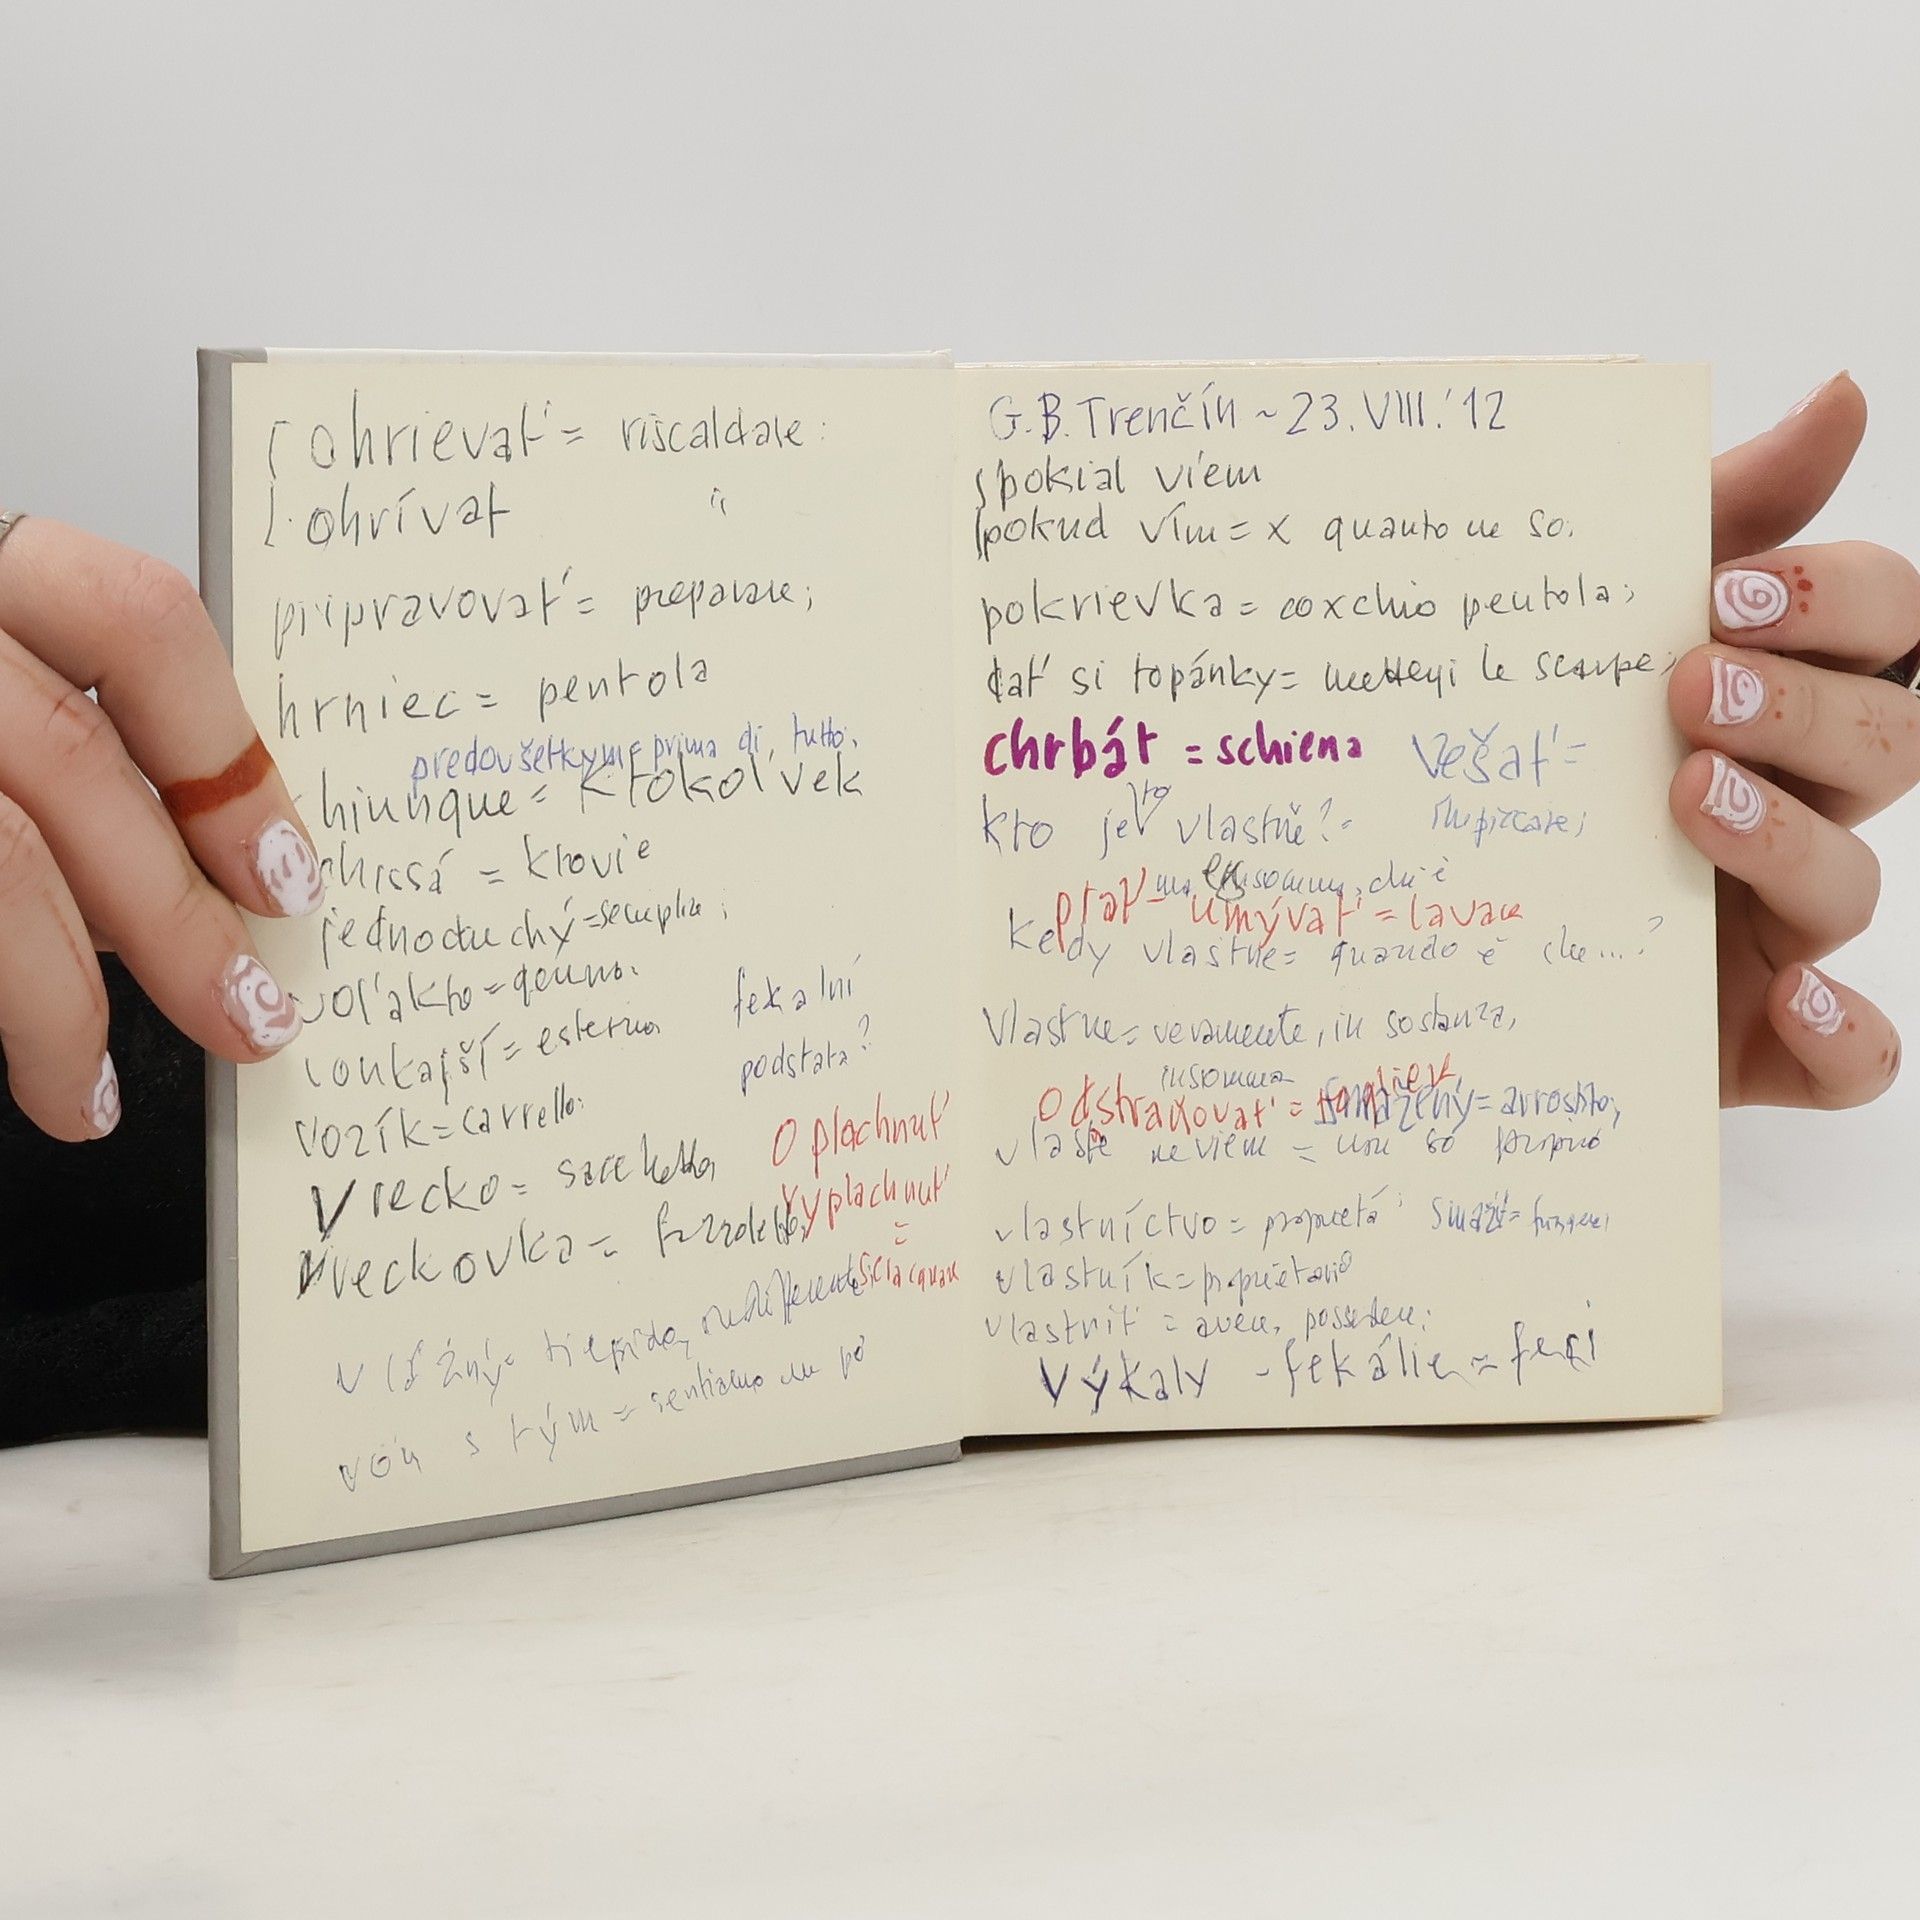 ohrievať = riscaldare:
ohrívať "
pripravovať = preparare;
hrniec = pentola
predovšetkým = prima di, tutto;
chiunque = ktokoľvek
= krovie
jednoduchý = semplice;
voľakto =
vonkajší = esterno
fekalní
podstata?
vozík = carrello;
vrecko = sacchetto,
oplachnuť
vyplachnuť
=
sciacquare
vreckovka = fazzoletto,
vlažný = tiepido, indifferente
von s tým = sentiamo un po'
G.B. Trenčín ~ 23.VIII.'12
pokial viem
pokud vím = x quanto ne so.
pokrievka = coxchio pentola;
dať si topánky = mettersi le scarpe;
chrbát = schiena
vešať =
impiccare;
kto je to vlastně? =
ma insomma, chi è
prať - umývať = lavare
Kedy vlastne = quando è che...?
Vlastne = veramente, in sostanza,
insomma
odstraňovať = togliere
smažený = arrosto,
neviem = non so proprio
vlastníctvo = proprietá;
smažiť = friggere;
vlastník = proprietario
vlastniť = avere, possedere;
výkaly - fekálie = feci